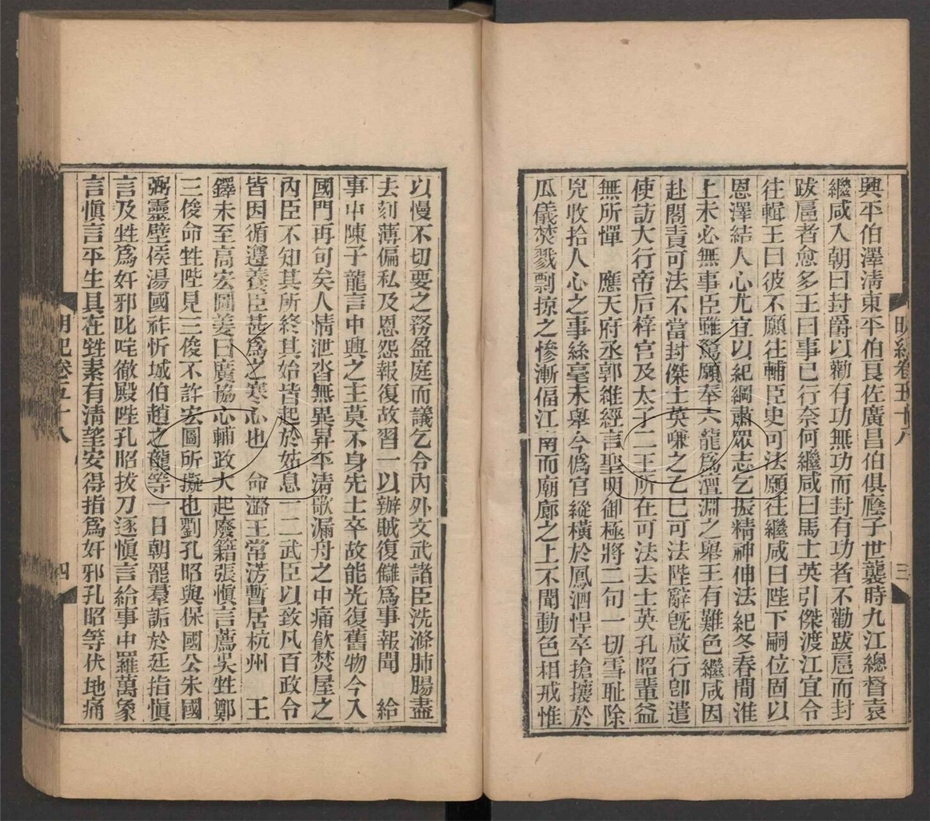 興平伯澤淸東平伯良佐廣昌伯俱廕子世襲時九江總督袁
繼咸入朝曰封爵以勸有功無功而封有功者不勸跋扈而封
跋扈者愈多王曰事已行奈何繼咸曰馬士英引傑渡江宜令
往輯王曰彼不願往輔臣史可法願往繼咸曰陛下嗣位固以
恩澤結人心尤宜以紀綱肅眾志乞振精神伸法紀冬春間淮
上未必無事臣雖駑願奉六龍爲澶淵之舉王有難色繼咸因
赴閣責可法不當封傑士英嗛之乙巳可法陛辭旣啟行卽遣
使訪大行帝后梓宮及太子二王所在可法去士英孔昭輩益
無所憚　應天府丞郭維經言聖明御極將二旬一切雪耻除
兇收拾人心之事絲毫未舉今僞官縱橫於鳳泗悍卒搶攘於
瓜儀焚戮剽掠之慘漸偪江南而廟廊之上不聞動色相戒惟
明紀卷五十八
三
以慢不切要之務盈庭而議乞令內外文武諸臣洗滌肺腸盡
去刻薄偏私及恩怨報復故習一以辦賊復讎爲事報聞　給
事中陳子龍言中興之主莫不身先士卒故能光復舊物今入
國門再旬矣人情泄沓無異昇平淸歌漏舟之中痛飮焚屋之
內臣不知其所終其始皆起於姑息一二武臣以致凡百政令
皆因循遵養臣甚爲之寒心也　命潞王常淓暫居杭州　王
鐸未至高宏圖姜曰廣協心輔政大起廢籍張愼言薦吳甡鄭
三俊命甡陛見三俊不許宏圖所擬也劉孔昭與保國公朱國
弼靈壁侯湯國祚忻城伯趙之龍等一日朝罷羣詬於廷指愼
言及甡爲奸邪叱咤徹殿陛孔昭拔刀逐愼言給事中羅萬象
言愼言平生具在甡素有淸望安得指爲奸邪孔昭等伏地痛
明紀卷五十八
四